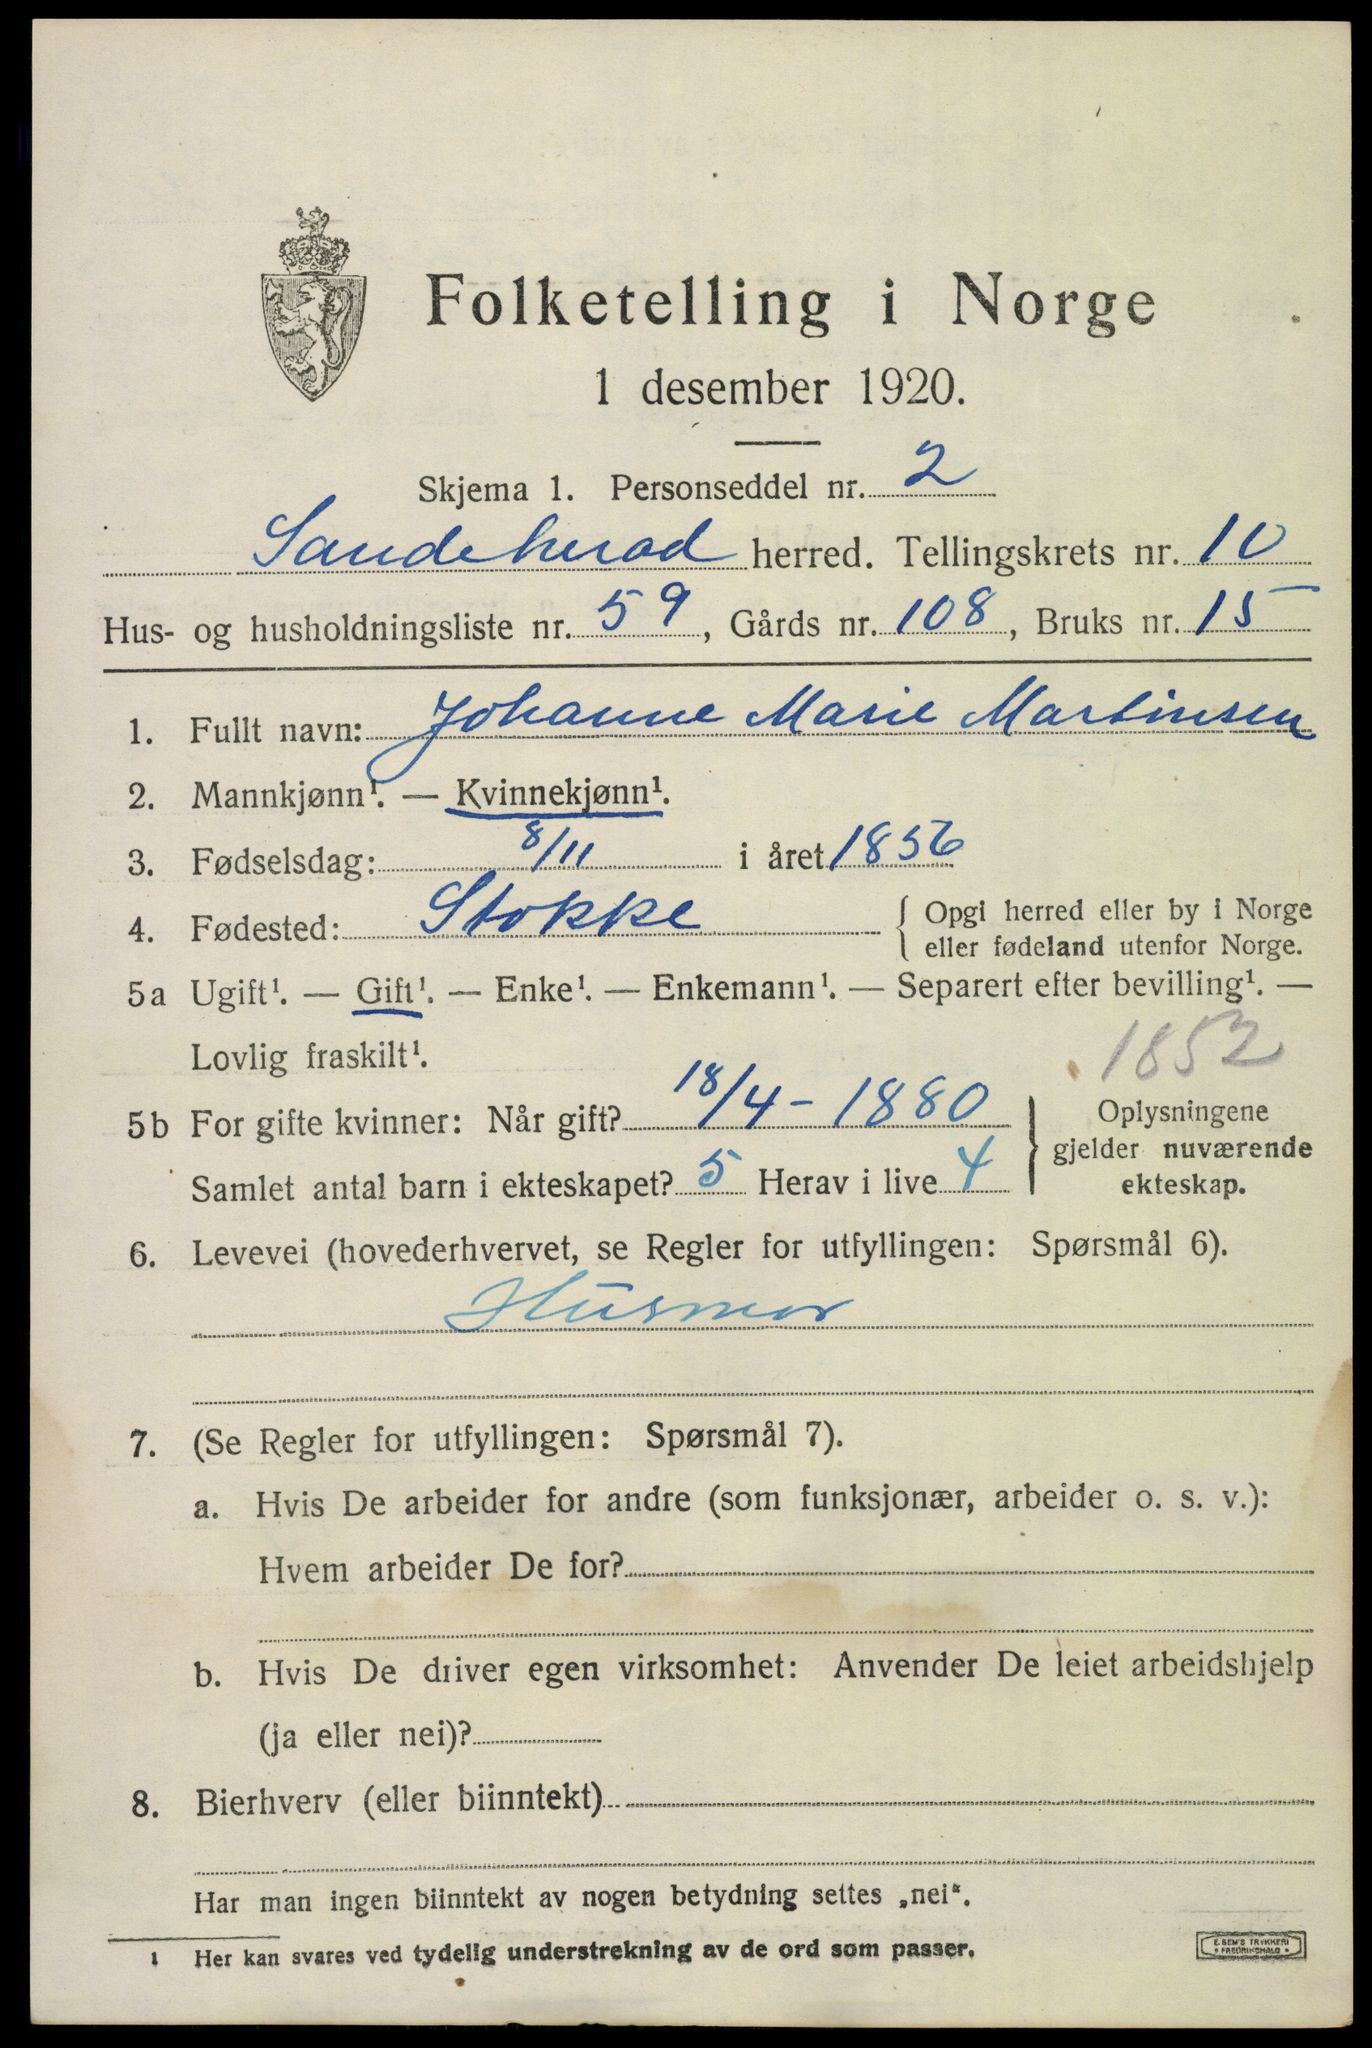 Folketelling i Norge
1 desember 1920.
Skjema 1. Personseddel nr. 2
Sandeherad herred. Tellingskrets nr. 10
Hus- og husholdningsliste nr. 59, Gårds nr. 108, Bruks nr. 15
1. Fullt navn: Johanne Marie Martinsen
2. Mannkjønn¹. — Kvinnekjønn¹.
3. Fødselsdag: 8/11 i året 1856
4. Fødested: Stokke { Opgi herred eller by i Norge
eller fødeland utenfor Norge.
5a Ugift¹. — Gift¹. — Enke¹. — Enkemann¹. — Separert efter bevilling¹. —
Lovlig fraskilt¹.
1852
5b For gifte kvinner: Når gift? 18/4 - 1880
Samlet antal barn i ekteskapet? 5 Herav i live 4
} Oplysningene
gjelder nuværende
ekteskap.
6. Levevei (hovederhvervet, se Regler for utfyllingen: Spørsmål 6).
Husmor
7. (Se Regler for utfyllingen: Spørsmål 7).
a. Hvis De arbeider for andre (som funksjonær, arbeider o. s. v.):
Hvem arbeider De for?
b. Hvis De driver egen virksomhet: Anvender De leiet arbeidshjelp
(ja eller nei)?
8. Bierhverv (eller biinntekt)
Har man ingen biinntekt av nogen betydning settes „nei".
1 Her kan svares ved tydelig understrekning av de ord som passer.
E. SEM'S TRYKKERI
• FREDRIKSHALD •